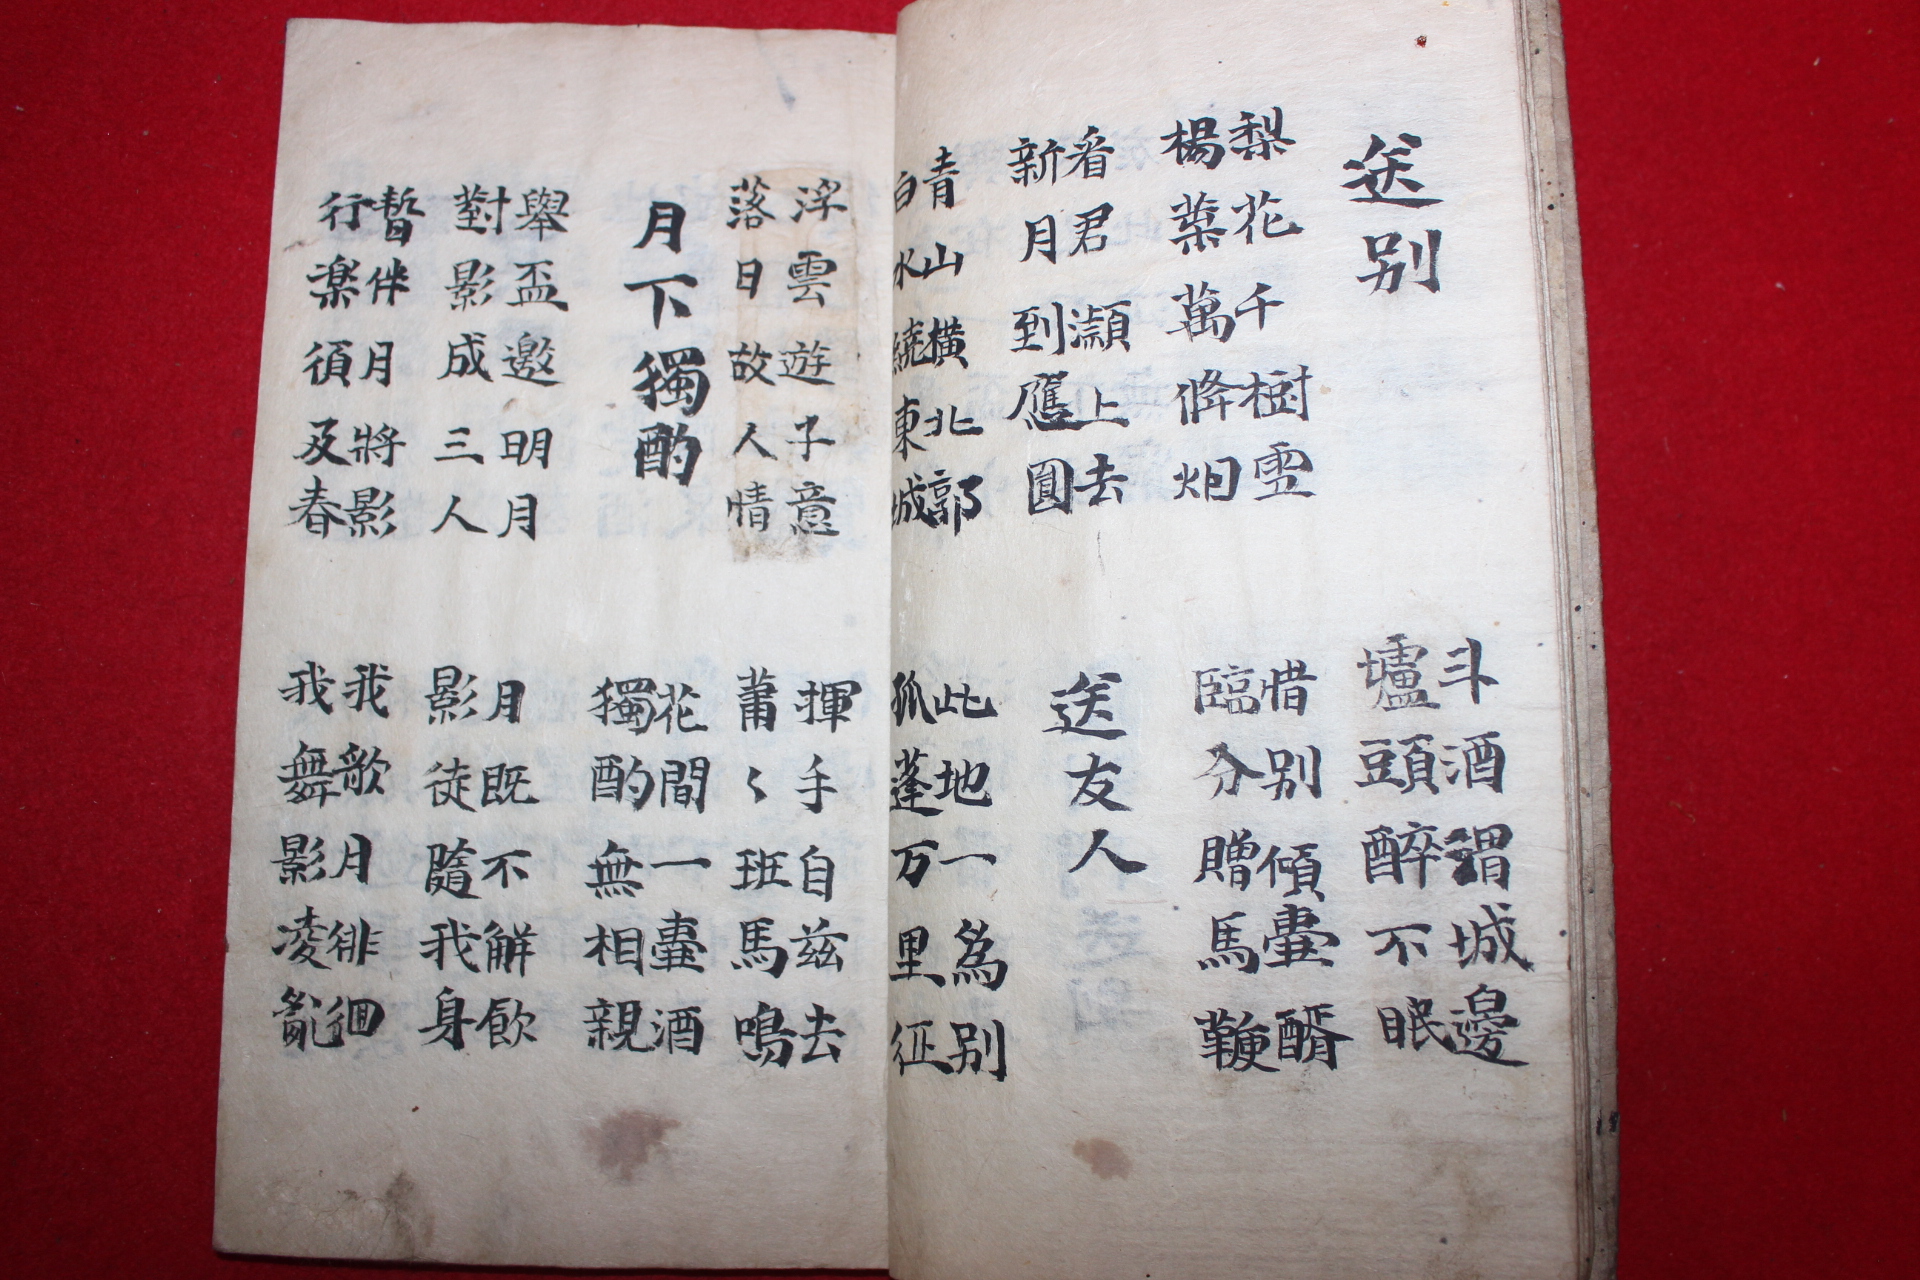 送别
斗酒謂城邊
壚頭醉不眠
梨花千樹雪
楊葉萬條烟
惜别傾壺醑
臨分贈馬鞭
看君灝上去
新月到應圓
送友人
青山橫北郭
白水繞東城
此地一為别
孤蓬万里征
浮雲遊子意
落日故人情
揮手自兹去
蕭〻班馬鳴
月下獨酌
花間一壺酒
獨酌無相親
舉盃邀明月
對影成三人
月既不解飲
影徒隨我身
暫伴月將影
行楽須及春
我歌月徘徊
我舞影凌亂